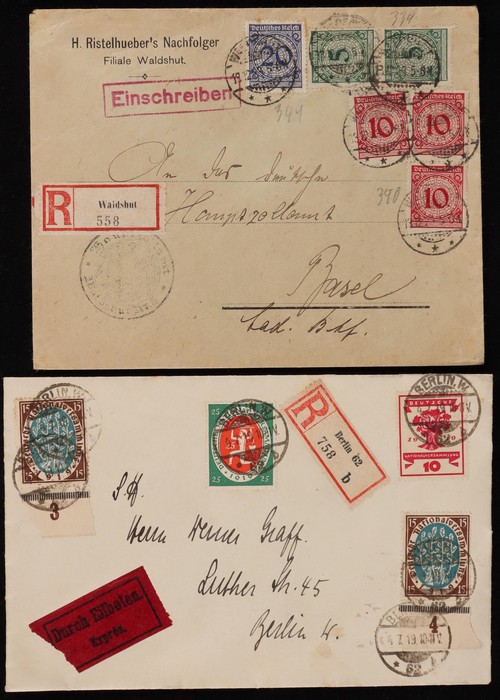 H. Ristelhueber's Nachfolger
Filiale Waldshut.
Einschreiben
344
344
340
Deutsches Reich
20
5
5
10
10
10
R
Waldshut
558
An das Deutsche
Hauptzollamt
Basel
bad. Bhf.
15
15
3
25
25
BERLIN. W.
R
Berlin 62
758 b
BERLIN. W.
DEUTSCHE
NATIONALVERSAMMLUNG
10
S. H.
Herrn Werner Graff.
Luther Str. 45
Berlin W.
Durch Eilboten.
Exprès.
15
15
4
62